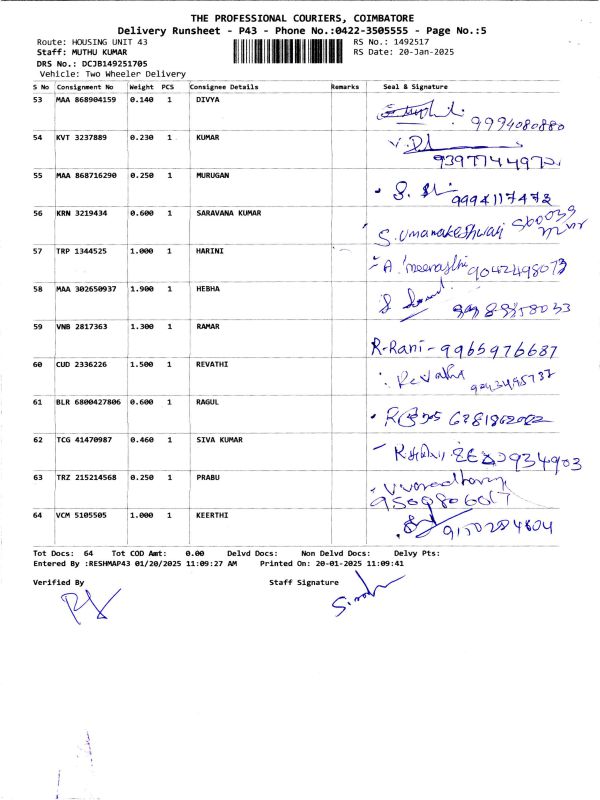 THE PROFESSIONAL COURIERS, COIMBATORE
Delivery Runsheet - P43 - Phone No.:0422-3505555 - Page No.:5
Route: HOUSING UNIT 43 RS No.: 1492517
Staff: MUTHU KUMAR RS Date: 20-Jan-2025
DRS No.: DCJB149251705
Vehicle: Two Wheeler Delivery
S No Consignment No Weight PCS Consignee Details Remarks Seal & Signature
53 MAA 868904159 0.140 1 DIVYA
9994080880
54 KVT 3237889 0.230 1 KUMAR
55 MAA 868716290 0.250 1 MURUGAN
9994117473
56 KRN 3219434 0.600 1 SARAVANA KUMAR
S. Umamakeshwari
57 TRP 1344525 1.000 1 HARINI
9042498073
58 MAA 302650937 1.900 1 HEBHA
59 VNB 2817363 1.300 1 RAMAR
R-Rani - 9965976687
60 CUD 2336226 1.500 1 REVATHI
Revathi
61 BLR 6800427806 0.600 1 RAGUL
62 TCG 41470987 0.460 1 SIVA KUMAR
63 TRZ 215214568 0.250 1 PRABU
64 VCM 5105505 1.000 1 KEERTHI
Tot Docs: 64 Tot COD Amt: 0.00 Delvd Docs: Non Delvd Docs: Delvy Pts:
Entered By :RESHMAP43 01/20/2025 11:09:27 AM Printed On: 20-01-2025 11:09:41
Verified By Staff Signature